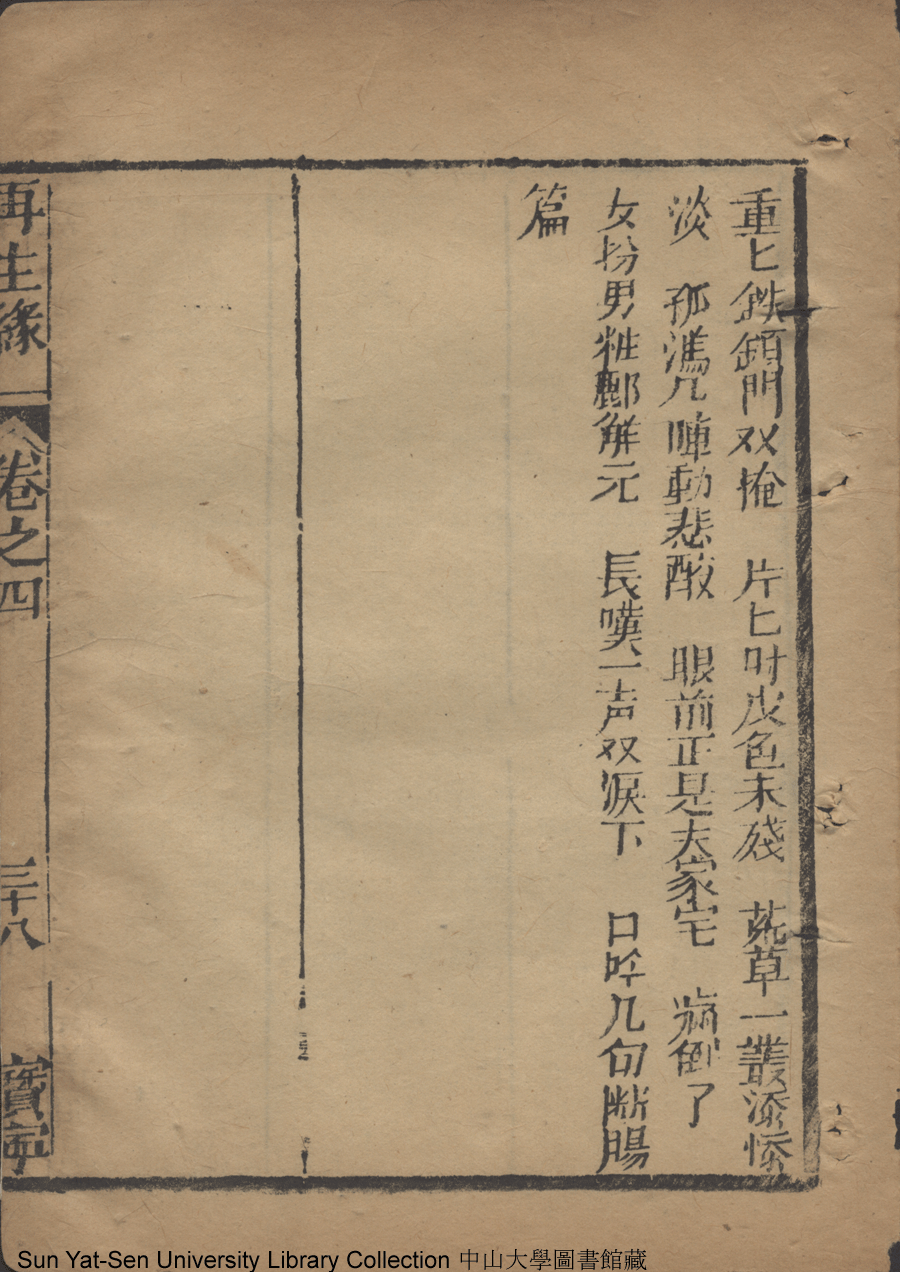 重匕鉄鎖門双掩 片匕叶戌色未殘 荒草一叢添慘
淡 孤馮几陣動悲酸 眼前正是夫家宅 病倒了
女扮男粧酈觧元 長嘆一声双淚下 口吟几句断腸
篇
再生緣 卷之四 三十八 寳寧
Sun Yat-Sen University Library Collection 中山大學圖書館藏